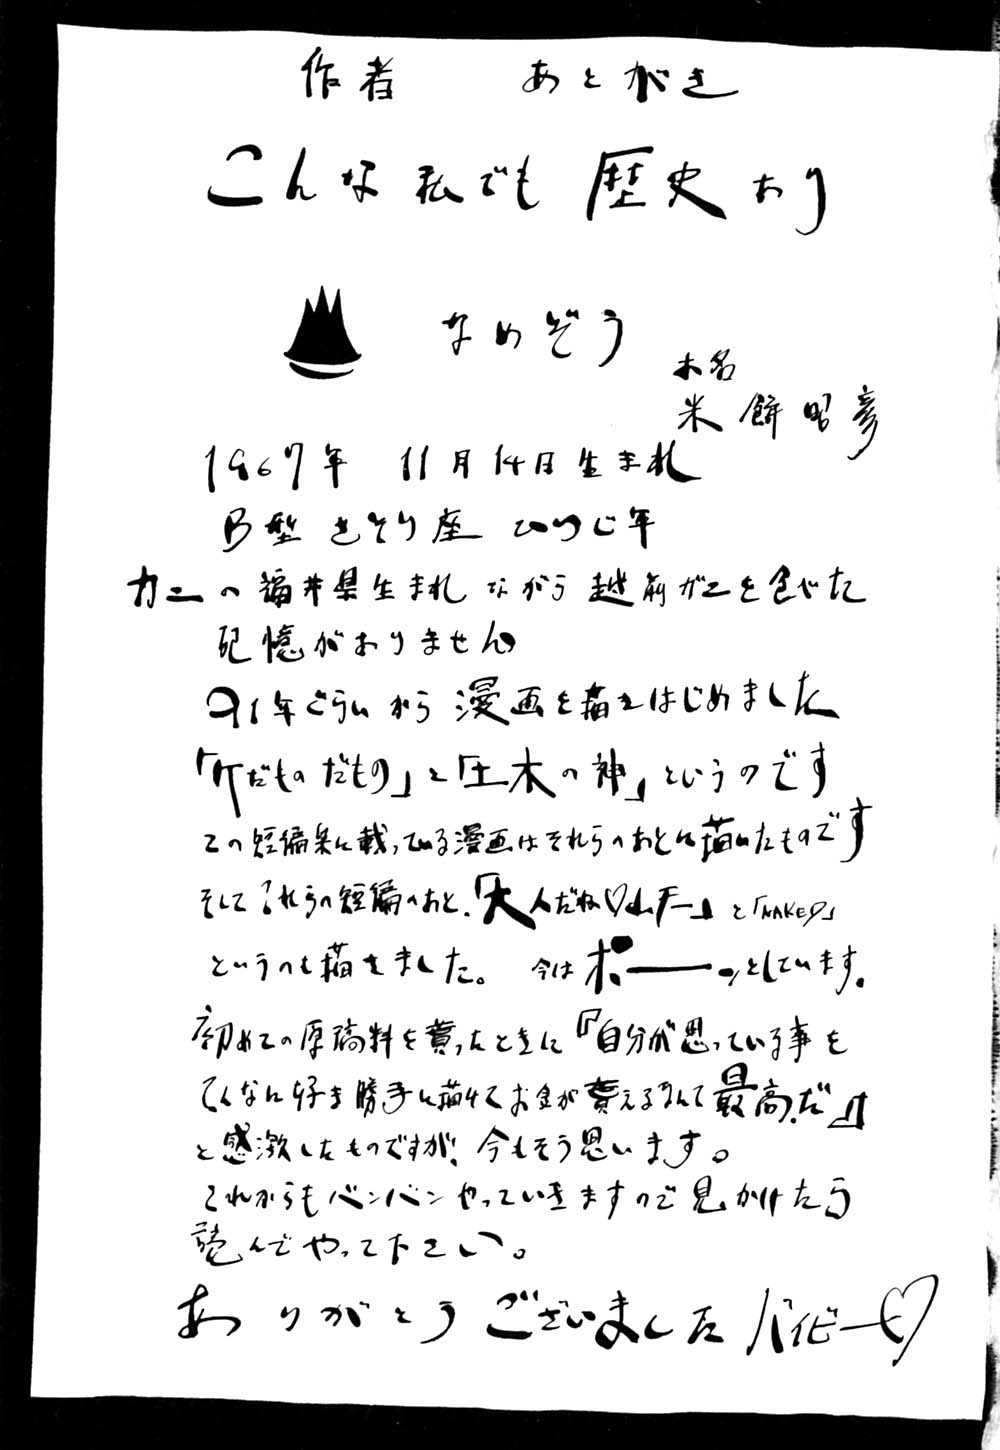 作者 あとがき
こんな私でも歴史あり
なめぞう
本名
米餅昭彦
1967年 11月14日生まれ
B型 さそり座 ひつじ年
カニの福井県生まれながら越前ガニを食べた
記憶がありません
91年ぐらいから漫画を描きはじめました
「けだものだもの」と「土木の神」というのです
この短編集に載っている漫画はそれらのあとに描いたものです
そしてこれらの短編のあと、「大人だね♡ムチー」と「NAKED」
というのも描きました。 今はボーーッとしています。
初めての原稿料を貰ったときに『自分が思っている事を
こんなに好き勝手に描けてお金が貰えるなんて最高だ』
と感激したものですが、今もそう思います。
これからもバンバンやっていきますので見かけたら
読んでやって下さい。
ありがとうございました バイビー♡